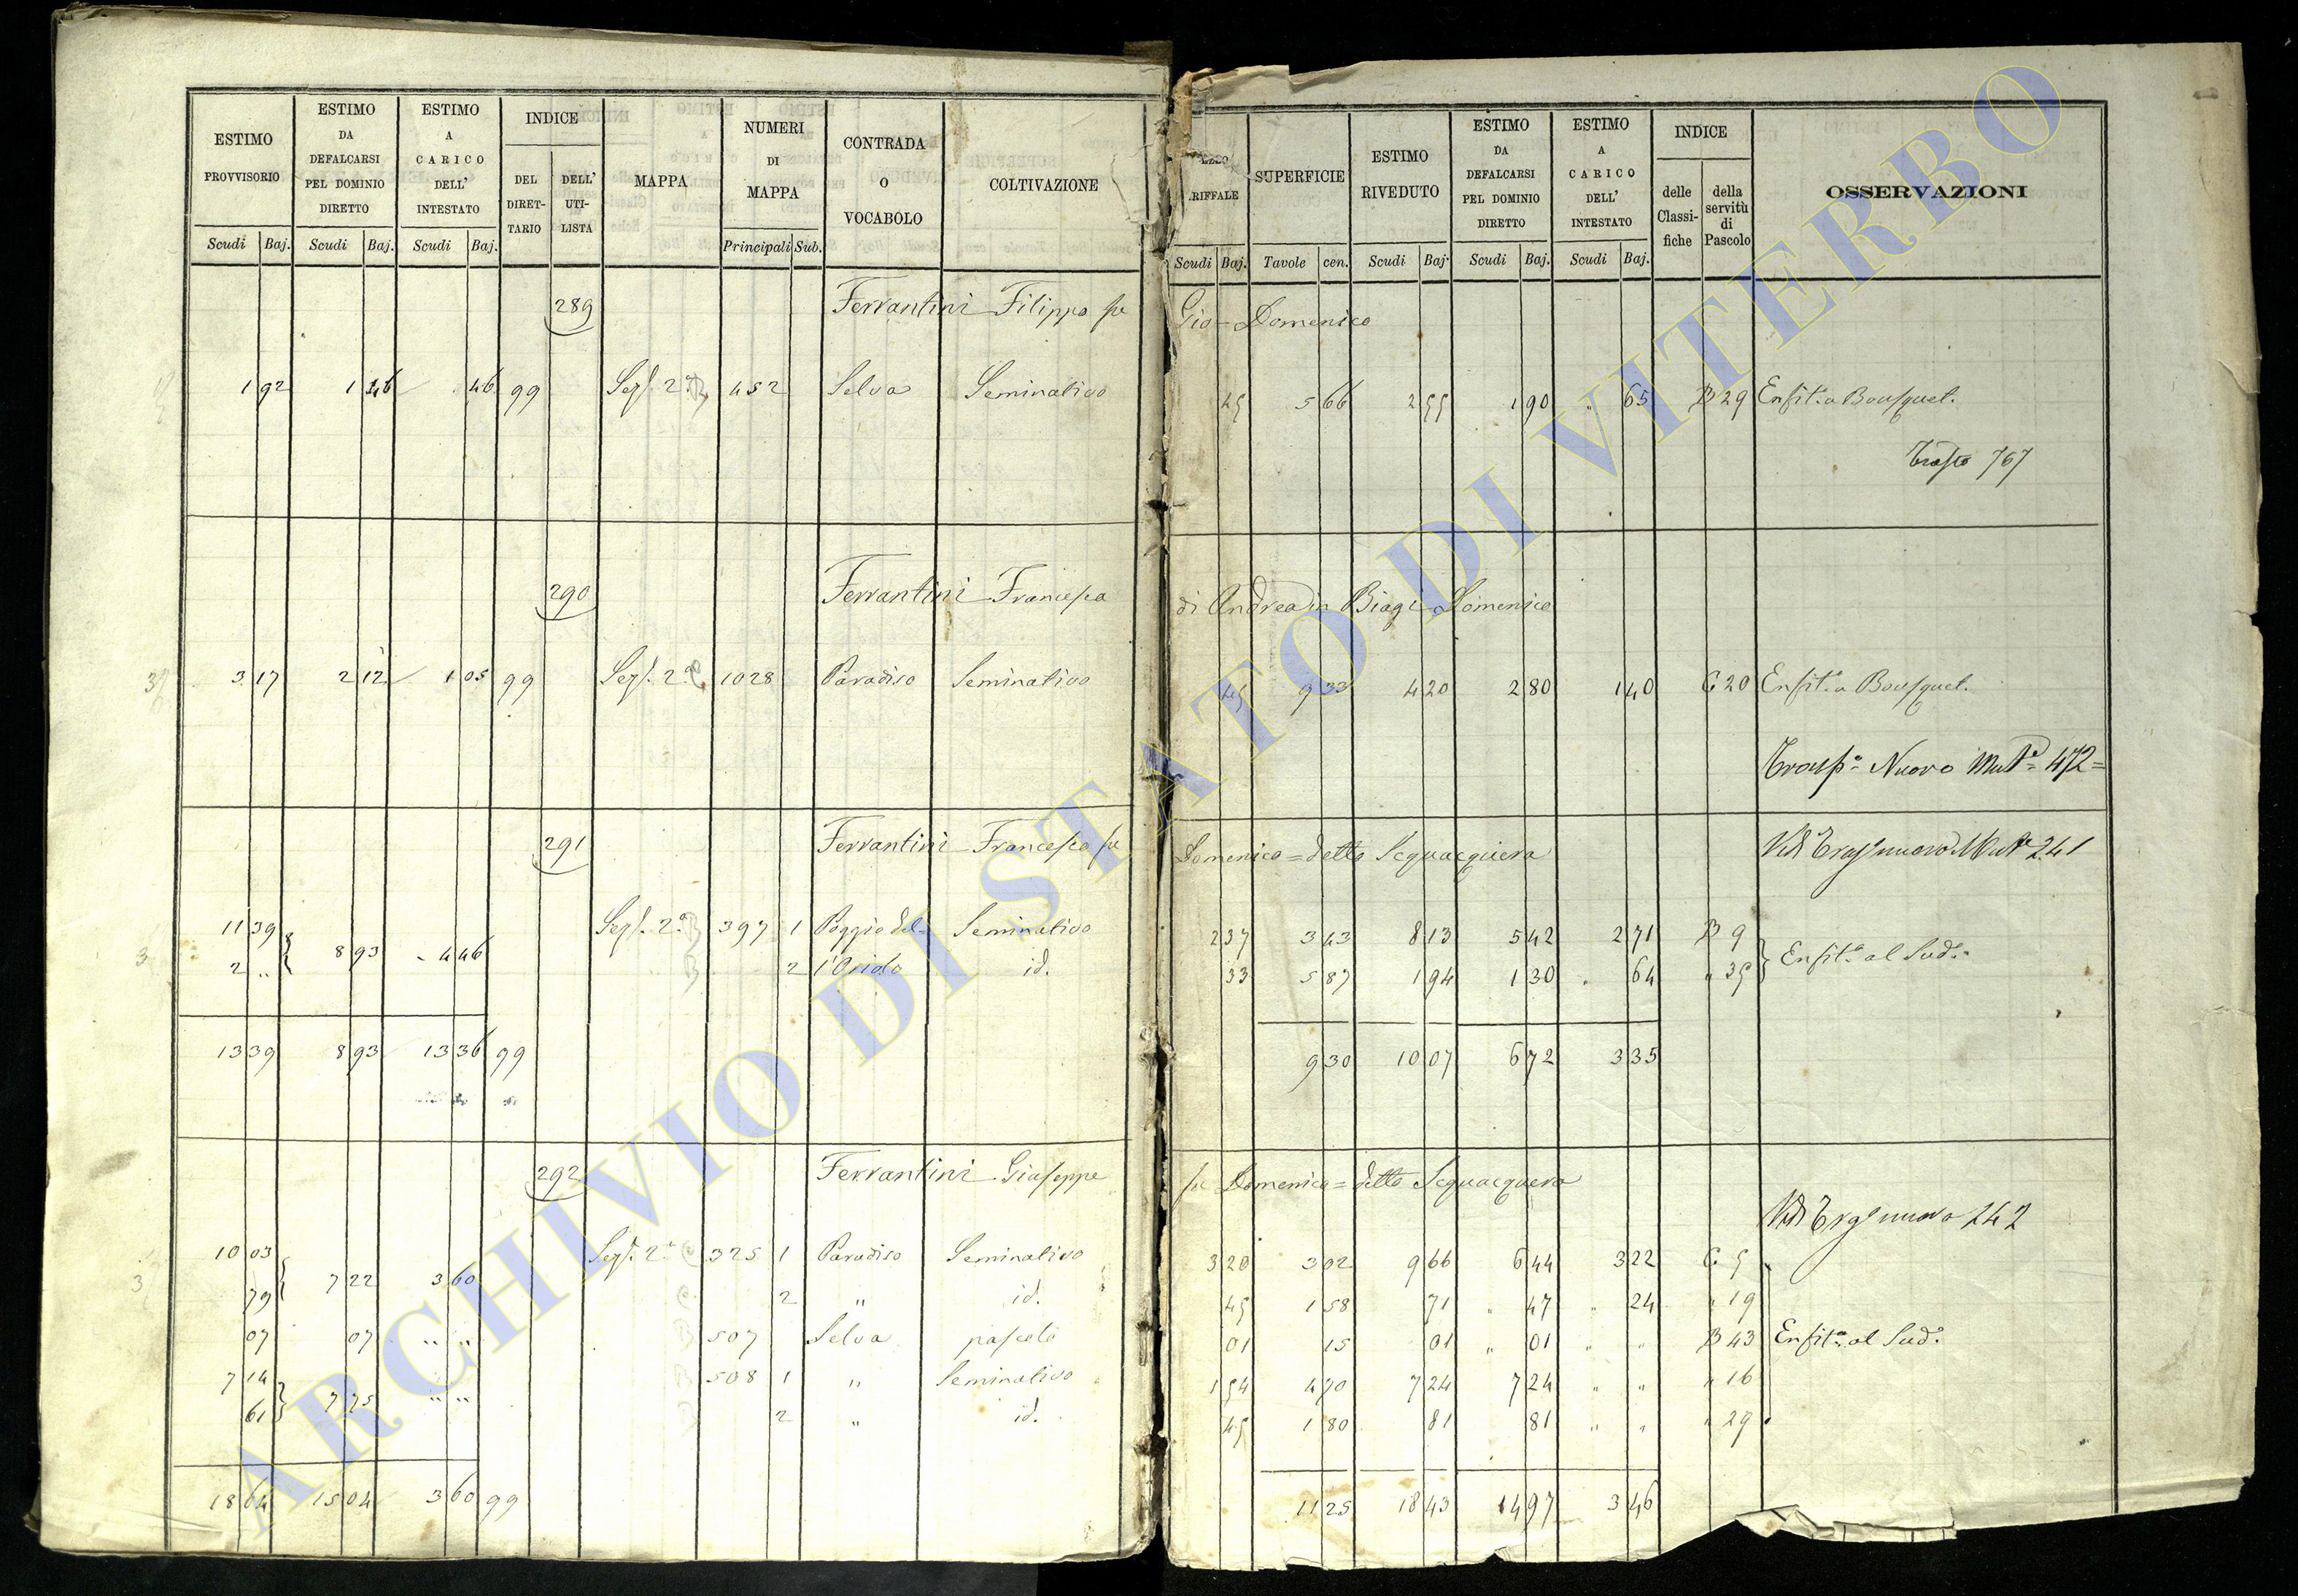 ESTIMO PROVVISORIO
ESTIMO DA DEFALCARSI PEL DOMINIO DIRETTO
ESTIMO A CARICO DELL' INTESTATO
INDICE
DEL DIRET-TARIO
DELL' UTI-LISTA
MAPPA
NUMERI DI MAPPA
CONTRADA O VOCABOLO
COLTIVAZIONE
RIFFALE
SUPERFICIE
ESTIMO RIVEDUTO
ESTIMO DA DEFALCARSI PEL DOMINIO DIRETTO
ESTIMO A CARICO DELL' INTESTATO
INDICE
delle Classi-fiche
della servitù di Pascolo
OSSERVAZIONI
Scudi Baj. Scudi Baj. Scudi Baj. Principali Sub. Scudi Baj. Tavole cen. Scudi Baj. Scudi Baj. Scudi Baj.
289 Ferrantini Filippo fu Gio Domenico
1 92 1 46 46 99 Sez. 2a 452 Selva Seminativo 45 5 66 2 55 1 90 " 65 B 29 Enfit.a Bousquet.
Trasto 767
290 Ferrantini Francesca di Andrea in Biagi Domenico
3 17 2 12 1 05 99 Sez. 2a 1028 Paradiso Seminativo 45 9 33 4 20 2 80 1 40 C 20 Enfit.a Bousquet.
Trasp.o Nuovo Mut.e 472 =
291 Ferrantini Francesco fu Domenico = detto Scquacquera Vedi Trasp nuovo Mut.e 241
11 39 8 93 4 46 Sez. 2a 397 1 Poggio del- Seminativo 2 37 3 43 8 13 5 42 2 71 B 9 Enfit.a al Sud.o
2 " 2 l'Oriolo id. 33 5 87 1 94 1 30 " 64 " 35
13 39 8 93 13 36 99 9 30 10 07 6 72 3 35
292 Ferrantini Giuseppe fu Domenico = detto Scquacquera
Vedi Trasp nuovo 242
10 03 7 22 3 60 Sez. 2a 325 1 Paradiso Seminativo 3 20 3 02 9 66 6 44 3 22 C 5
79 2 " id. 45 1 58 71 " 47 " 24 " 19
07 07 " " 507 Selva pascolo 01 15 01 " 01 " " B 43 Enfit.a al Sud.o
7 14 7 75 " " 508 1 " Seminativo 1 54 4 70 7 24 7 24 " " " 16
61 2 " id. 45 1 80 81 81 " " " 29
18 64 15 04 3 60 99 11 25 18 43 14 97 3 46
ARCHIVIO DI STATO DI VITERBO